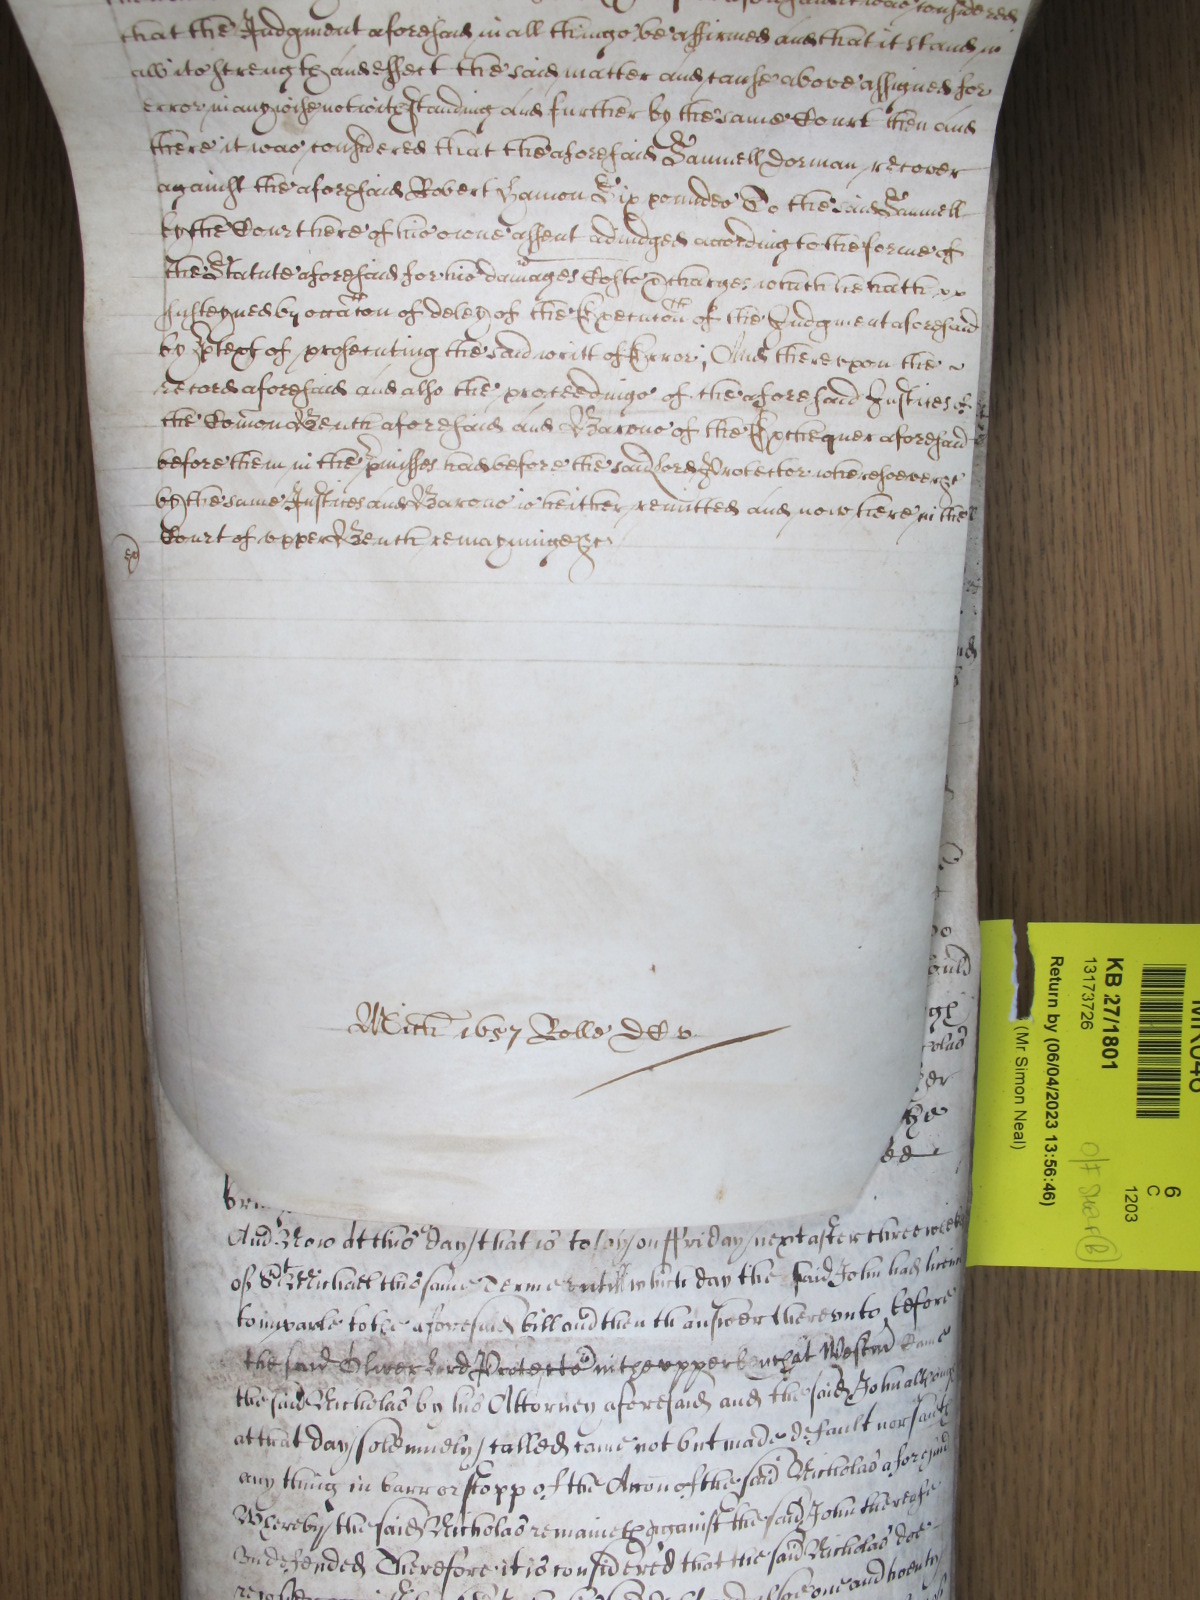 that the Judgment aforesaid in all things be affirmed and that it stand in
all its strength and effect the said matter and cause above assigned for
error in any wise notwithstanding and further by the same Court then and
there it was considered that the aforesaid Samuell Dorman recover
against the aforesaid Robert Hamon Six poundes To the said Samuell
by the Court here of his owne assent adiudged according to the forme of
the Statute aforesaid for his damages Costs & charges which he hath
susteyned by occacon of delay of the Execucon of the Judgment aforesaid
by ptext of prosecuting the said writt of Error, And thereupon the
record aforesaid and also the proceedings of the aforesaid Justices of
the Comon Bench aforesaid and Barons of the Exchequer aforesaid
before them in the pmisses had before the said Lord Protector wheresoever &c
by the same Justices and Barons is hither remitted and now here in the
Court of upper Bench remayninge &c
Mich 1657 Rolle
And Now at this day that is to say on ffriday next after three weeks
of St Michael this same Terme untill which day the said John had licence
to imparle to the aforesaid bill and then to answer thereunto before
the said Oliver Lord Protector in the upper bench at Westmr Came
the said Nicholas by his Attorney aforesaid and the said John
at that day solemnely called came not but made default nor saith
any thing in barr or stopp of the Accon of the said Nicholas aforesaid
Whereby the said Nicholas remaineth against the said John therefore
undefended Therefore it is considered that the said Nicholas doe
one and twenty
KB 27/1801
13173726
Return by (06/04/2023 13:56:46)
(Mr Simon Neal)
6
C
1203